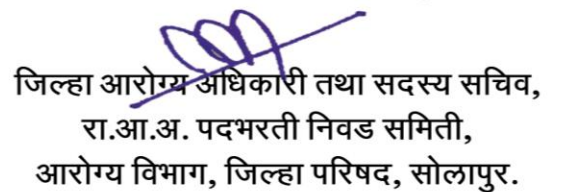 जिल्हा आरोग्य अधिकारी तथा सदस्य सचिव,
रा.आ.अ. पदभरती निवड समिती,
आरोग्य विभाग, जिल्हा परिषद, सोलापुर.